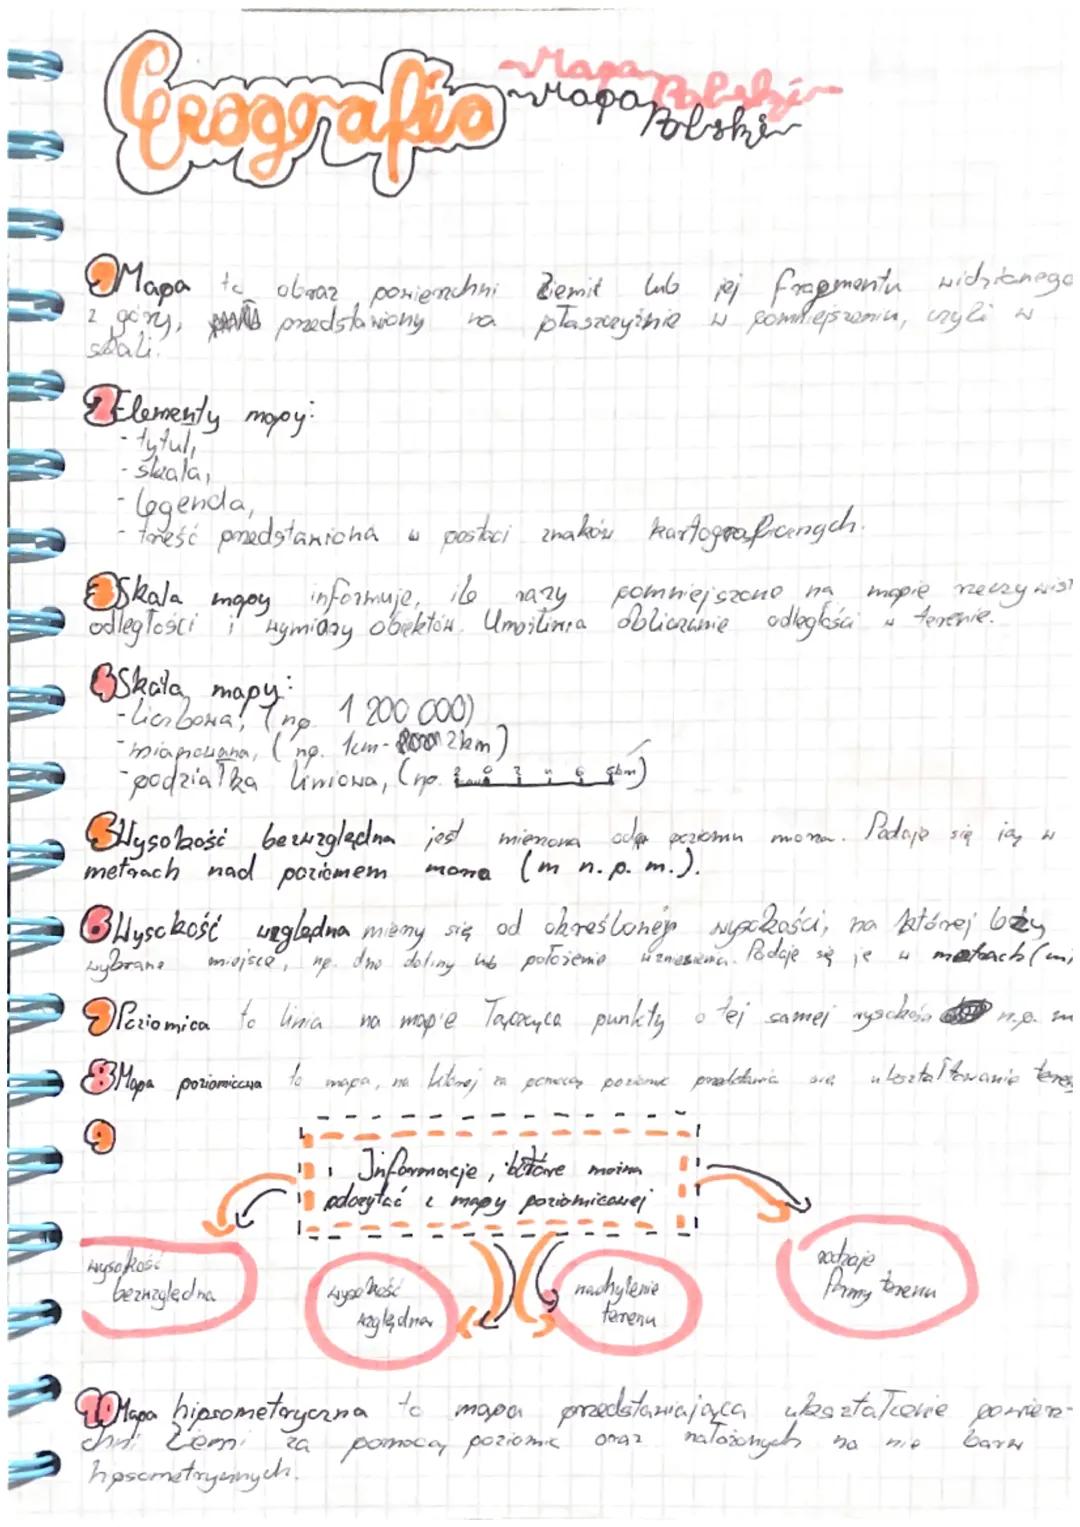 Geografia
Mapa Polski
1 Mapa to obraz powierzchni Ziemi lub jej fragmentu widzianego
z góry, przedstawiony na płaszczyźnie w pomniejszeniu, czyli w
skali.
2 Elementy mapy:
- tytuł,
- skala,
- legenda,
- treść przedstawiona w postaci znaków kartograficznych.
3 Skala mapy informuje, ile razy pomniejszono na mapie rzeczywist
odległości i wymiary obiektów. Umożliwia obliczanie odległości w terenie.
4 Skala mapy:
- liczbowa, (np. 1 200 000)
- mianowana, (np. 1cm - 2km)
- podziałka liniowa, (np. 2 0 2 4 6 8km)
5 Wysokość bezwzględna jest mierzona od poziomu morza. Podaje się ją w
metrach nad poziomem morza (m n.p.m.).
6 Wysokość względna mierzy się od określonej wysokości, na której leży
wybrane miejsce, np. dno doliny lub położenie wzniesienia. Podaje się je w metrach (m
7 Poziomica to linia na mapie łącząca punkty o tej samej wysokości n.p. m
8 Mapa poziomicowa to mapa, na której za pomocą poziomic przedstawia się ukształtowanie teren
9
Informacje, które można
odczytać z mapy poziomicowej
wysokość
bezwzględna
wysokość
względna
nachylenie
terenu
rodzaje
formy terenu
10 Mapa hipsometryczna to mapa przedstawiająca ukształcenie powierz-
chni Ziemi za pomocą poziomic oraz nałożonych na nie barw
hipsometrycznych.